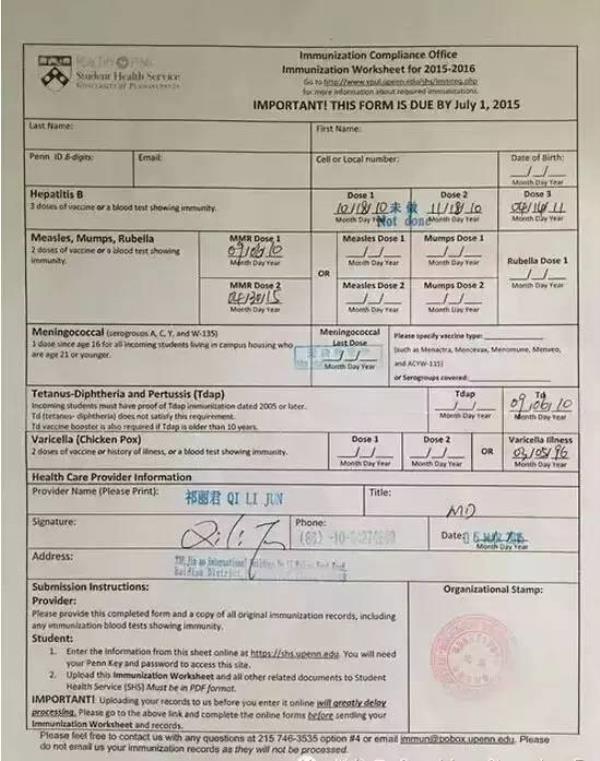 Student Health Service
UNIVERSITY OF PENNSYLVANIA
Immunization Compliance Office
Immunization Worksheet for 2015-2016
Go to http://www.vpul.upenn.edu/shs/immreq.php
for more information about required immunizations.
IMPORTANT! THIS FORM IS DUE BY July 1, 2015
Last Name:
First Name:
Penn ID 8-digits:
Email:
Cell or Local number:
Date of Birth:
_/_/_
Month Day Year
Hepatitis B
3 doses of vaccine or a blood test showing immunity.
Dose 1
10/18/10
Month Day Year
未做
Not done
Dose 2
11/18/10
Month Day Year
Dose 3
04/14/11
Month Day Year
Measles, Mumps, Rubella
2 doses of vaccine or a blood test showing
immunity.
MMR Dose 1
09/06/10
Month Day Year
MMR Dose 2
Month Day Year
OR
Measles Dose 1
_/_/_
Month Day Year
Measles Dose 2
_/_/_
Month Day Year
Mumps Dose 1
_/_/_
Month Day Year
Mumps Dose 2
_/_/_
Month Day Year
Rubella Dose 1
_/_/_
Month Day Year
Meningococcal (serogroups A, C, Y, and W-135)
1 dose since age 16 for all incoming students living in campus housing who
are age 21 or younger.
Meningococcal
Last Dose
_/_/_
Month Day Year
Please specify vaccine type:
(such as Menactra, Mencevax, Menomune, Menveo,
and ACYW-135)
or Serogroups covered:
Tetanus-Diphtheria and Pertussis (Tdap)
Incoming students must have proof of Tdap immunization dated 2005 or later.
Td (tetanus- diphtheria) does not satisfy this requirement.
Td vaccine booster is also required if Tdap is older than 10 years.
Tdap
_/_/_
Month Day Year
Td
09/06/10
Month Day Year
Varicella (Chicken Pox)
2 doses of vaccine or history of illness, or a blood test showing immunity.
Dose 1
_/_/_
Month Day Year
Dose 2
_/_/_
Month Day Year
OR
Varicella Illness
03/05/96
Month Day Year
Health Care Provider Information
Provider Name (Please Print):
祁丽君 QI LI JUN
Title:
MD
Signature:
Qi Li Jun
Phone:
Date:
Month Day Year
Address:
Haidian District
Submission Instructions:
Provider:
Please provide this completed form and a copy of all original immunization records, including
any immunization blood tests showing immunity.
Student:
1. Enter the information from this sheet online at https://shs.upenn.edu. You will need
your Penn Key and password to access this site.
2. Upload this Immunization Worksheet and all other related documents to Student
Health Service (SHS) Must be in PDF format.
IMPORTANT! Uploading your records to us before you enter it online will greatly delay
processing. Please go to the above link and complete the online forms before sending your
Immunization Worksheet and records.
Organizational Stamp:
Please feel free to contact us with any questions at 215 746-3535 option #4 or email immun@pobox.upenn.edu. Please
do not email us your immunization records as they will not be processed.